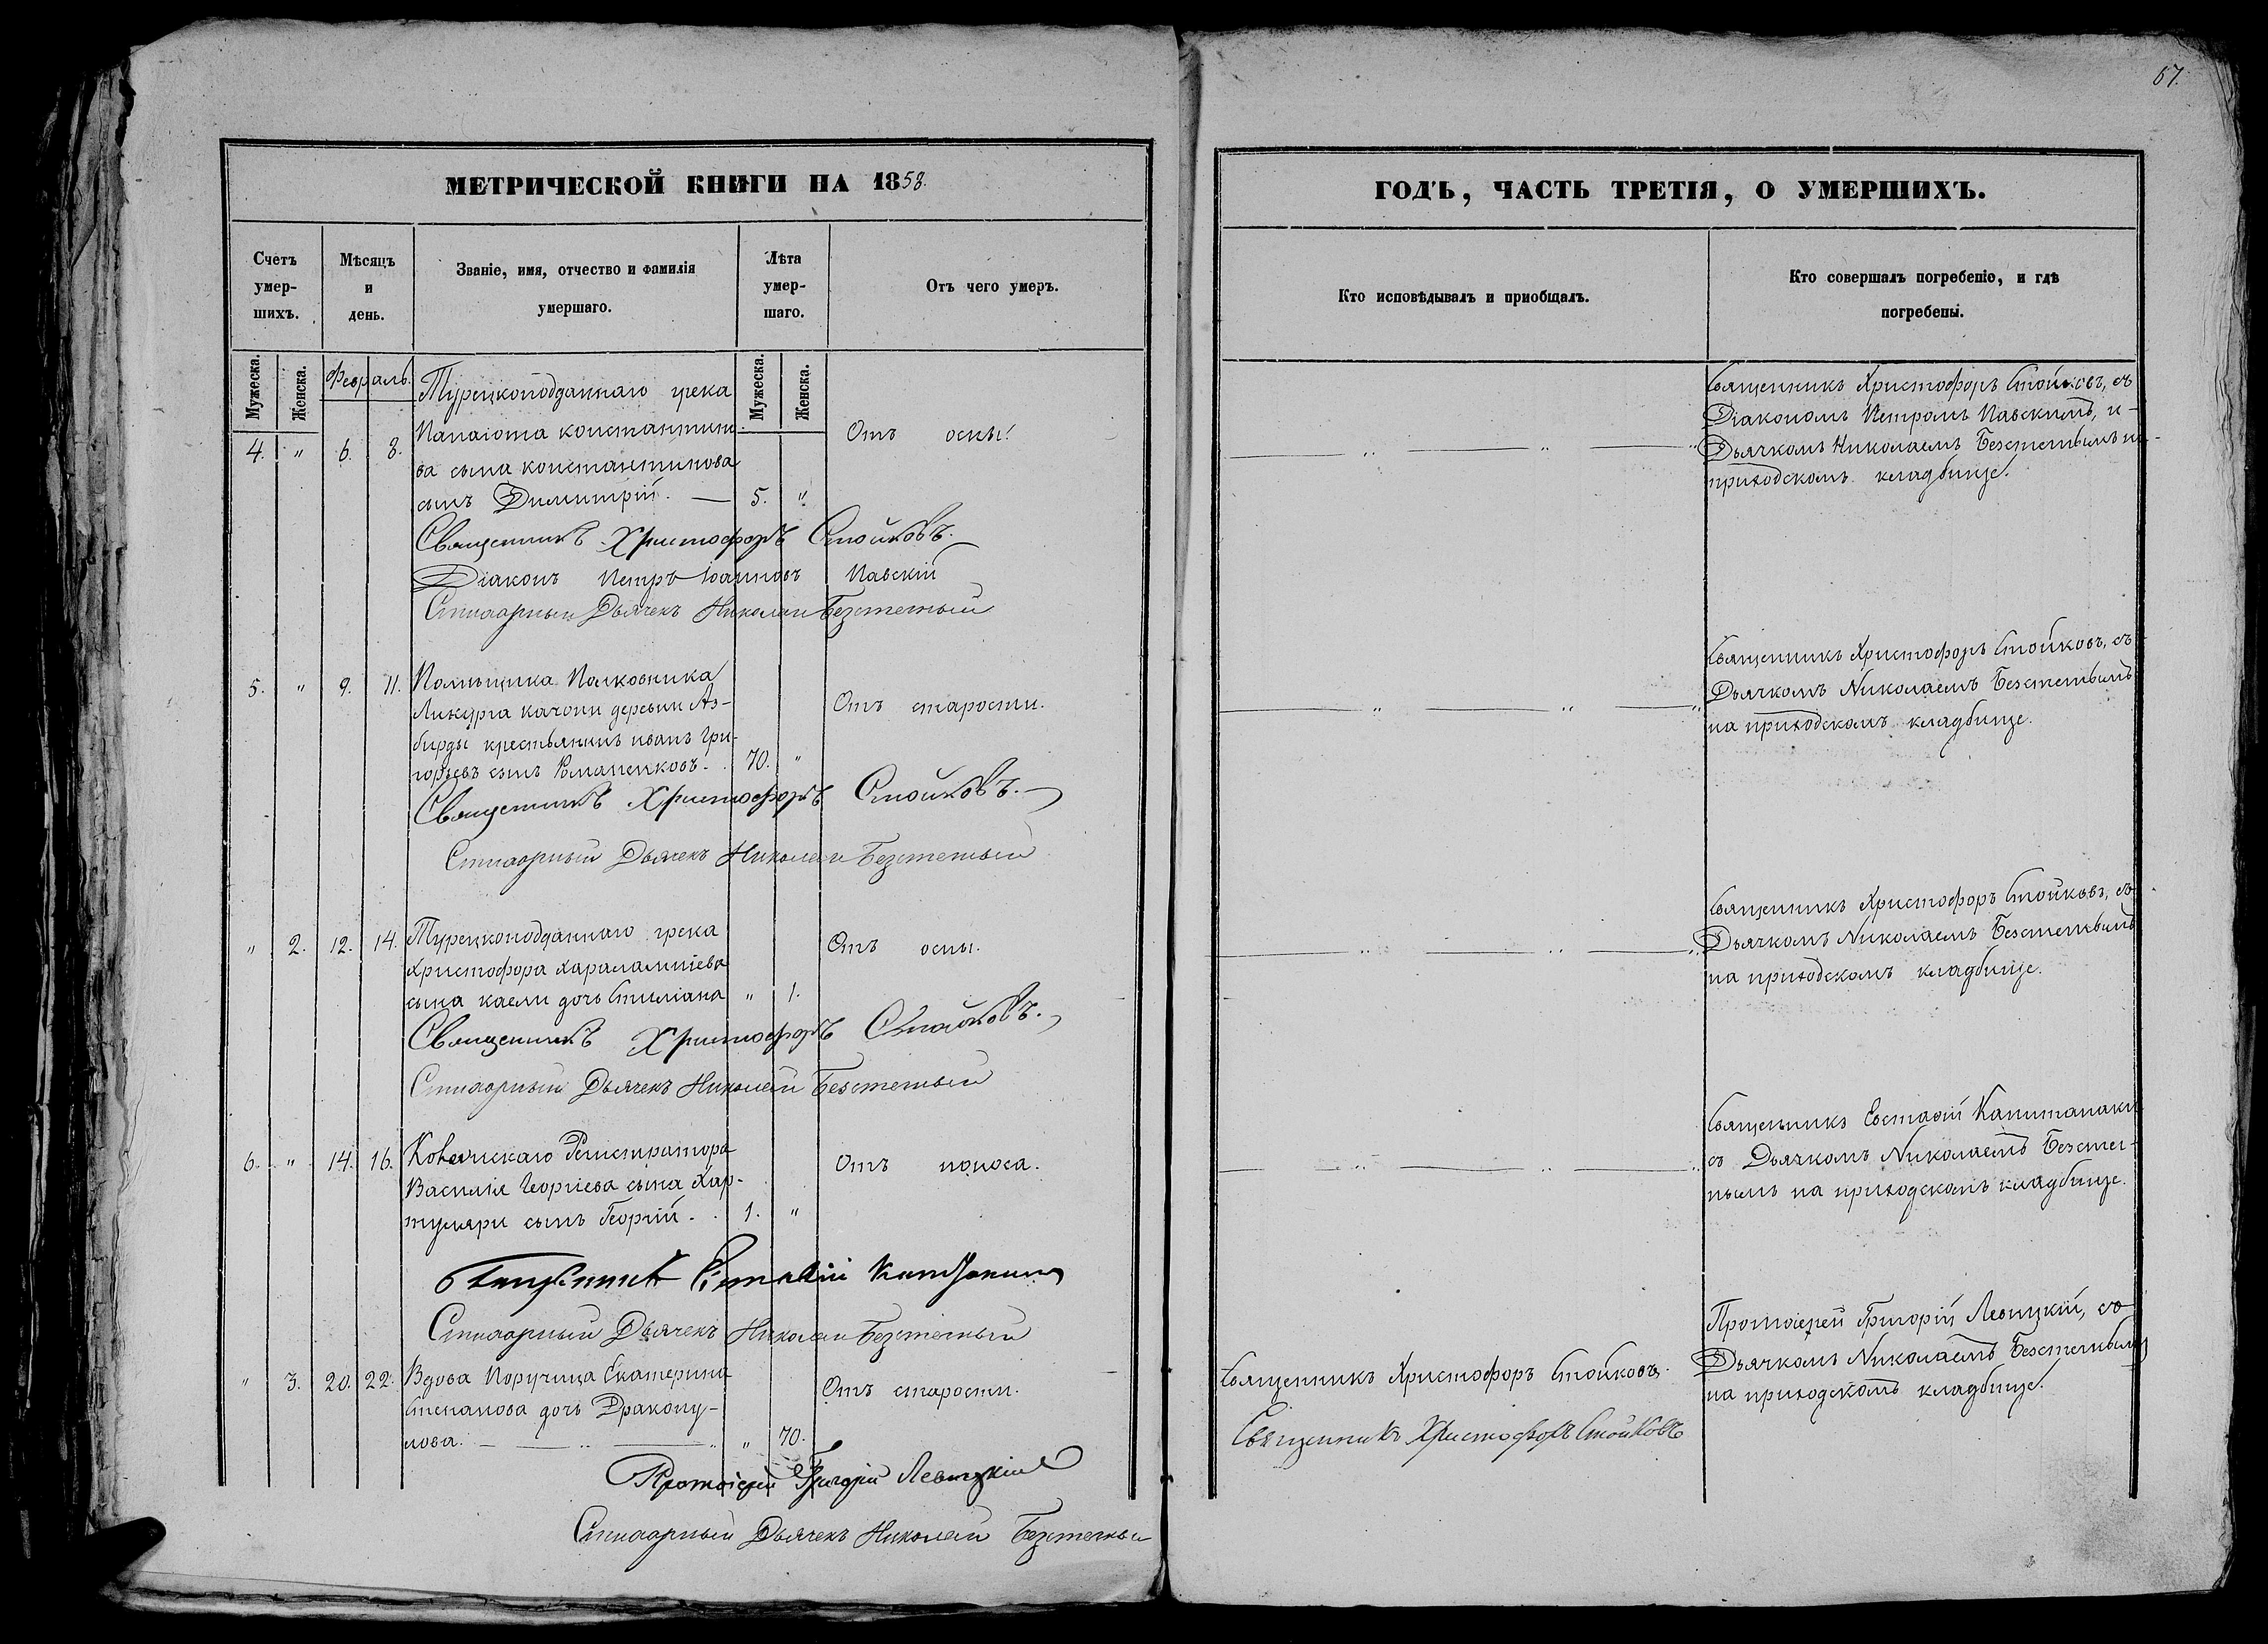 57.
МЕТРИЧЕСКОЙ КНИГИ НА 1858.
Счетъ умер- шихъ.
Мѣсяцъ и день.
Званіе, имя, отчество и фамилія умершаго.
Лѣта умер- шаго.
Отъ чего умеръ.
Мужеска.
Женска.
Мужеска.
Женска.
Февраль.
4. " 6. 8.
Турецкоподданнаго грека
Панаіота Константино
ва сына Константинова
сынъ Димитрій. — 5. "
Отъ оспы.
Священникъ Христофоръ Стойковъ.
Діаконъ Петръ Іоанновъ Павскій
Стихарный Дьячекъ Николай Безстетный
5. " 9. 11.
Помѣщика Полковника
Ликурга Качони деревни Аз-
бирды крестьянинъ Иванъ Гри-
горьевъ сынъ Романенковъ. 70. "
Отъ старости.
Священникъ Христофоръ Стойковъ.
Стихарный Дьячекъ Николай Безстетный
" 2. 12. 14.
Турецкоподданнаго грека
Христофора Харалампіева
сына Каели дочь Стиліана " 1.
Отъ оспы.
Священникъ Христофоръ Стойковъ.
Стихарный Дьячекъ Николай Безстетный
6. " 14. 16.
Регистратора
Василія Георгіева сына Хар-
туляри сынъ Георгій. 1. "
Отъ поноса.
Священникъ Евстафій Капитанаки
Стихарный Дьячекъ Николай Безстетный
" 3. 20. 22.
Вдова Поручица Екатерина
Степанова дочь Дракопу-
лова. " 70.
Отъ старости.
Протоіерей Григорій Левицкій
Стихарный Дьячекъ Николай Безстетный
ГОДЪ, ЧАСТЬ ТРЕТІЯ, О УМЕРШИХЪ.
Кто исповѣдывалъ и пріобщалъ.
Кто совершалъ погребеніе, и гдѣ
погребены.
Священникъ Христофоръ Стойковъ, съ
Діакономъ Петромъ Павскимъ, и
Дьячкомъ Николаемъ Безстетнымъ на
приходскомъ кладбище.
Священникъ Христофоръ Стойковъ, съ
Дьячкомъ Николаемъ Безстетнымъ
на приходскомъ кладбище.
Священникъ Христофоръ Стойковъ, съ
Дьячкомъ Николаемъ Безстетнымъ
на приходскомъ кладбище.
Священникъ Евстафій Капитанаки
съ Дьячкомъ Николаемъ Безстет-
нымъ на приходскомъ кладбище.
Священникъ Христофоръ Стойковъ.
Священникъ Христофоръ Стойковъ
Протоіерей Григорій Левицкій, съ
Дьячкомъ Николаемъ Безстетнымъ
на приходскомъ кладбище.